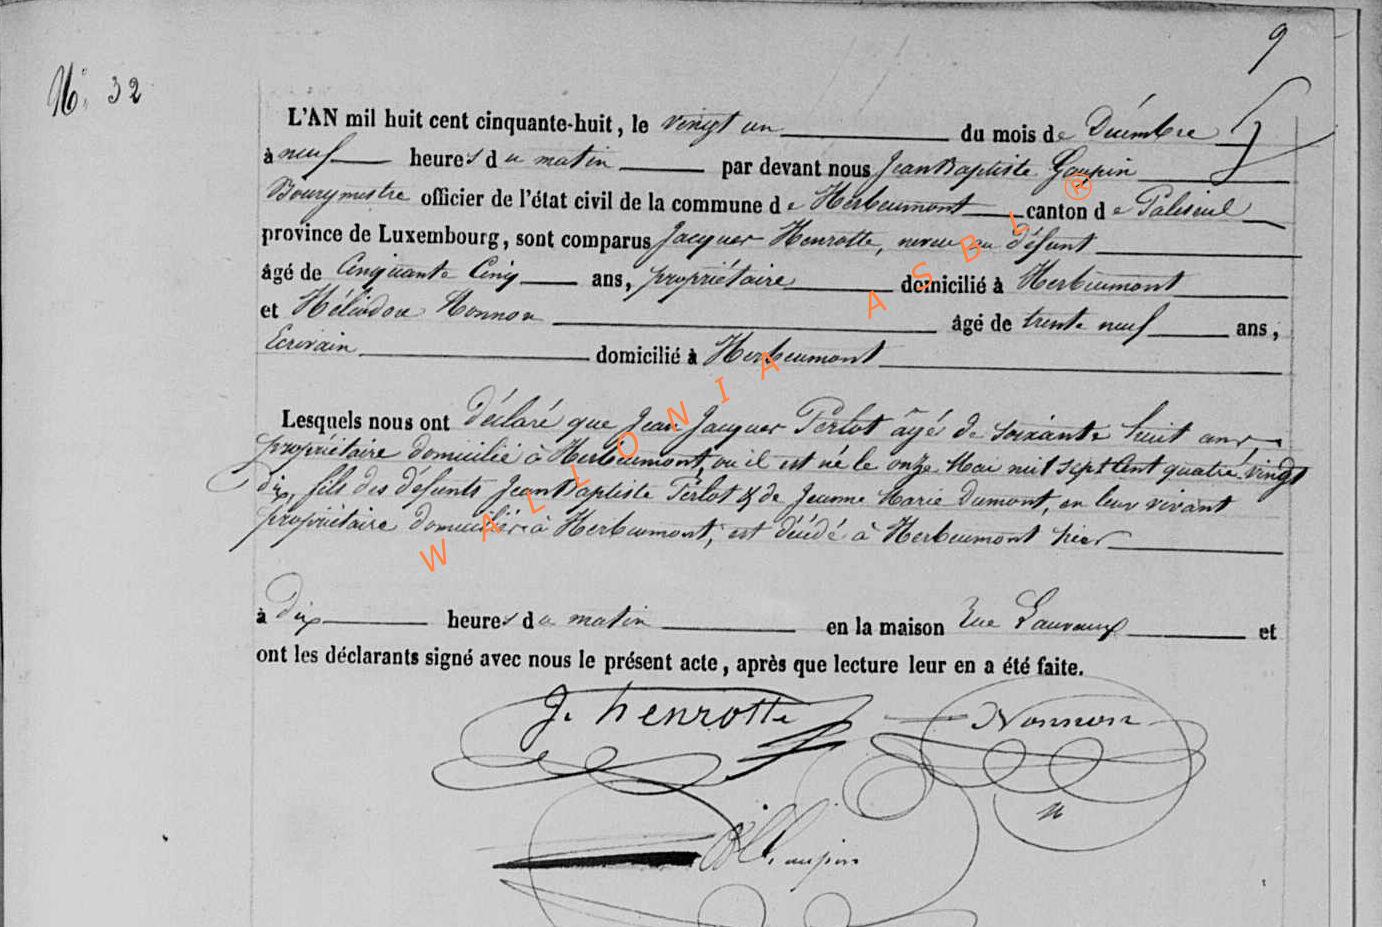 9
No. 32
L'AN mil huit cent cinquante-huit, le vingt un du mois de Décembre
à neuf heures du matin par devant nous Jean Baptiste Gaupin
Bourgmestre officier de l'état civil de la commune de Herbeumont canton de Paliseul
province de Luxembourg, sont comparus Jacques Henrotte, neveu au défunt
âgé de Cinquante Cinq ans, propriétaire domicilié à Herbeumont
et Héliodore Nonnon âgé de trente neuf ans,
Ecrivain domicilié à Herbeumont
Lesquels nous ont déclaré que Jean Jacques Perlot âgé de soixante huit ans
propriétaire domicilié à Herbeumont, où il est né le onze Mai mil sept Cent quatre vingt
dix, fils des défunts Jean Baptiste Perlot & de Jeanne Marie Dumont, en leur vivant
propriétaire domiciliés à Herbeumont, est décédé à Herbeumont hier
à dix heures du matin en la maison rue et
ont les déclarants signé avec nous le présent acte, après que lecture leur en a été faite.
J. henrotte Nonnon
Gaupin
WALLONIA ASBL ®